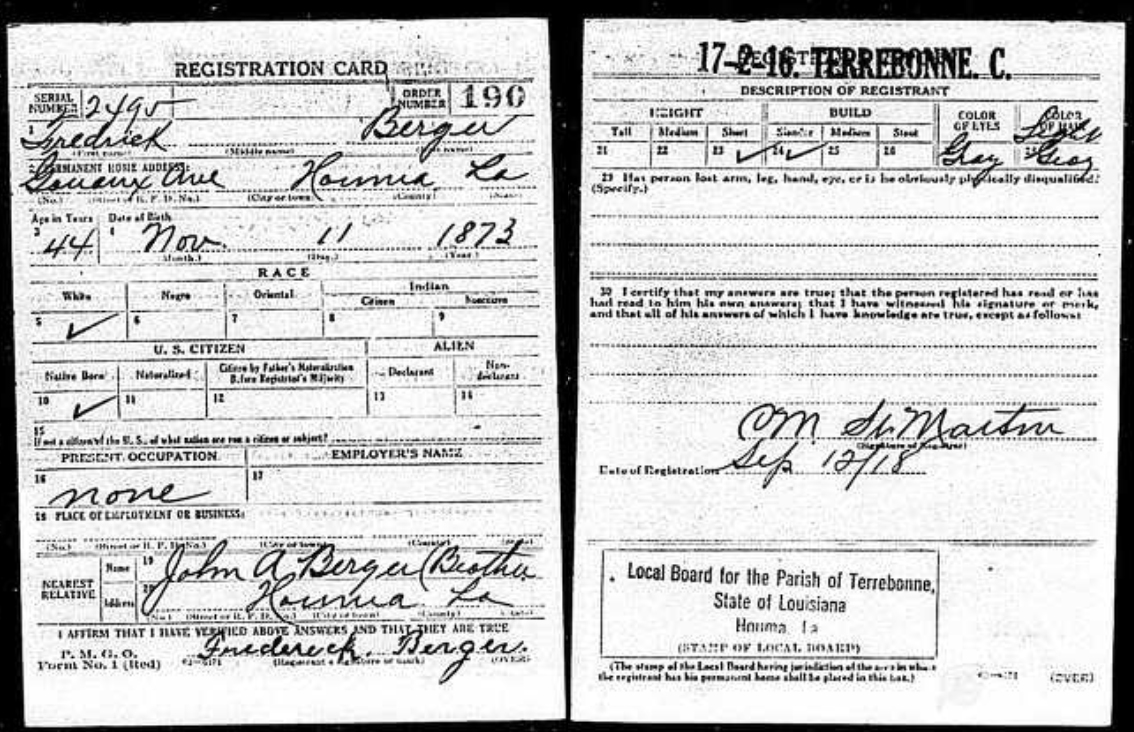 REGISTRATION CARD
SERIAL NUMBER 2495 ORDER NUMBER 190
1 Fredrick Berger
(First name) (Middle name) (Last name)
2 PERMANENT HOME ADDRESS:
Ave Houma La
(No.) (Street or R. F. D. No.) (City or town) (County) (State)
Age in Years Date of Birth
3 44 4 Nov. 11 1873
(Month.) (Day.) (Year.)
RACE
White Negro Oriental Indian
Citizen Noncitizen
5 ✓ 6 7 8 9
U. S. CITIZEN ALIEN
Native Born Naturalized Citizen by Father's Naturalization Before Registrant's Majority Declarant Non-declarant
10 ✓ 11 12 13 14
15
If not a citizen of the U. S., of what nation are you a citizen or subject?
PRESENT OCCUPATION EMPLOYER'S NAME
16 none 17
18 PLACE OF EMPLOYMENT OR BUSINESS:
(No.) (Street or R. F. D. No.) (City or town) (County) (State)
NEAREST RELATIVE Name 19 John A Berger (Brother
Address 20 Houma La
(No.) (Street or R. F. D. No.) (City or town) (County) (State)
I AFFIRM THAT I HAVE VERIFIED ABOVE ANSWERS AND THAT THEY ARE TRUE
P. M. G. O.
Form No. 1 (Red) Frederick Berger.
(Registrant's signature or mark) (OVER)
17-2-16. TERREBONNE. C.
DESCRIPTION OF REGISTRANT
HEIGHT BUILD COLOR OF EYES COLOR OF HAIR
Tall Medium Short Slender Medium Stout
21 22 23 ✓ 24 ✓ 25 26 Gray 28 Gray
29 Has person lost arm, leg, hand, eye, or is he obviously physically disqualified?
(Specify.)
30 I certify that my answers are true; that the person registered has read or has
had read to him his own answers; that I have witnessed his signature or mark,
and that all of his answers of which I have knowledge are true, except as follows:
CM St Martin
(Signature of Registrar)
Date of Registration Sep 12/18
Local Board for the Parish of Terrebonne,
State of Louisiana
Houma, La
(STAMP OF LOCAL BOARD)
(The stamp of the Local Board having jurisdiction of the area in which
the registrant has his permanent home shall be placed in this box.)
(OVER)